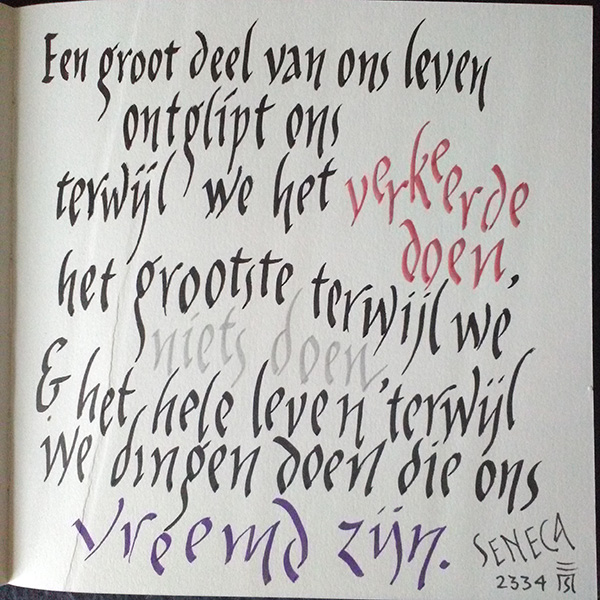 Een groot deel van ons leven
ontglipt ons
terwijl we het verkeerde
doen,
het grootste terwijl we
niets doen
& het hele leven terwijl
we dingen doen die ons
vreemd zijn.
SENECA
2334